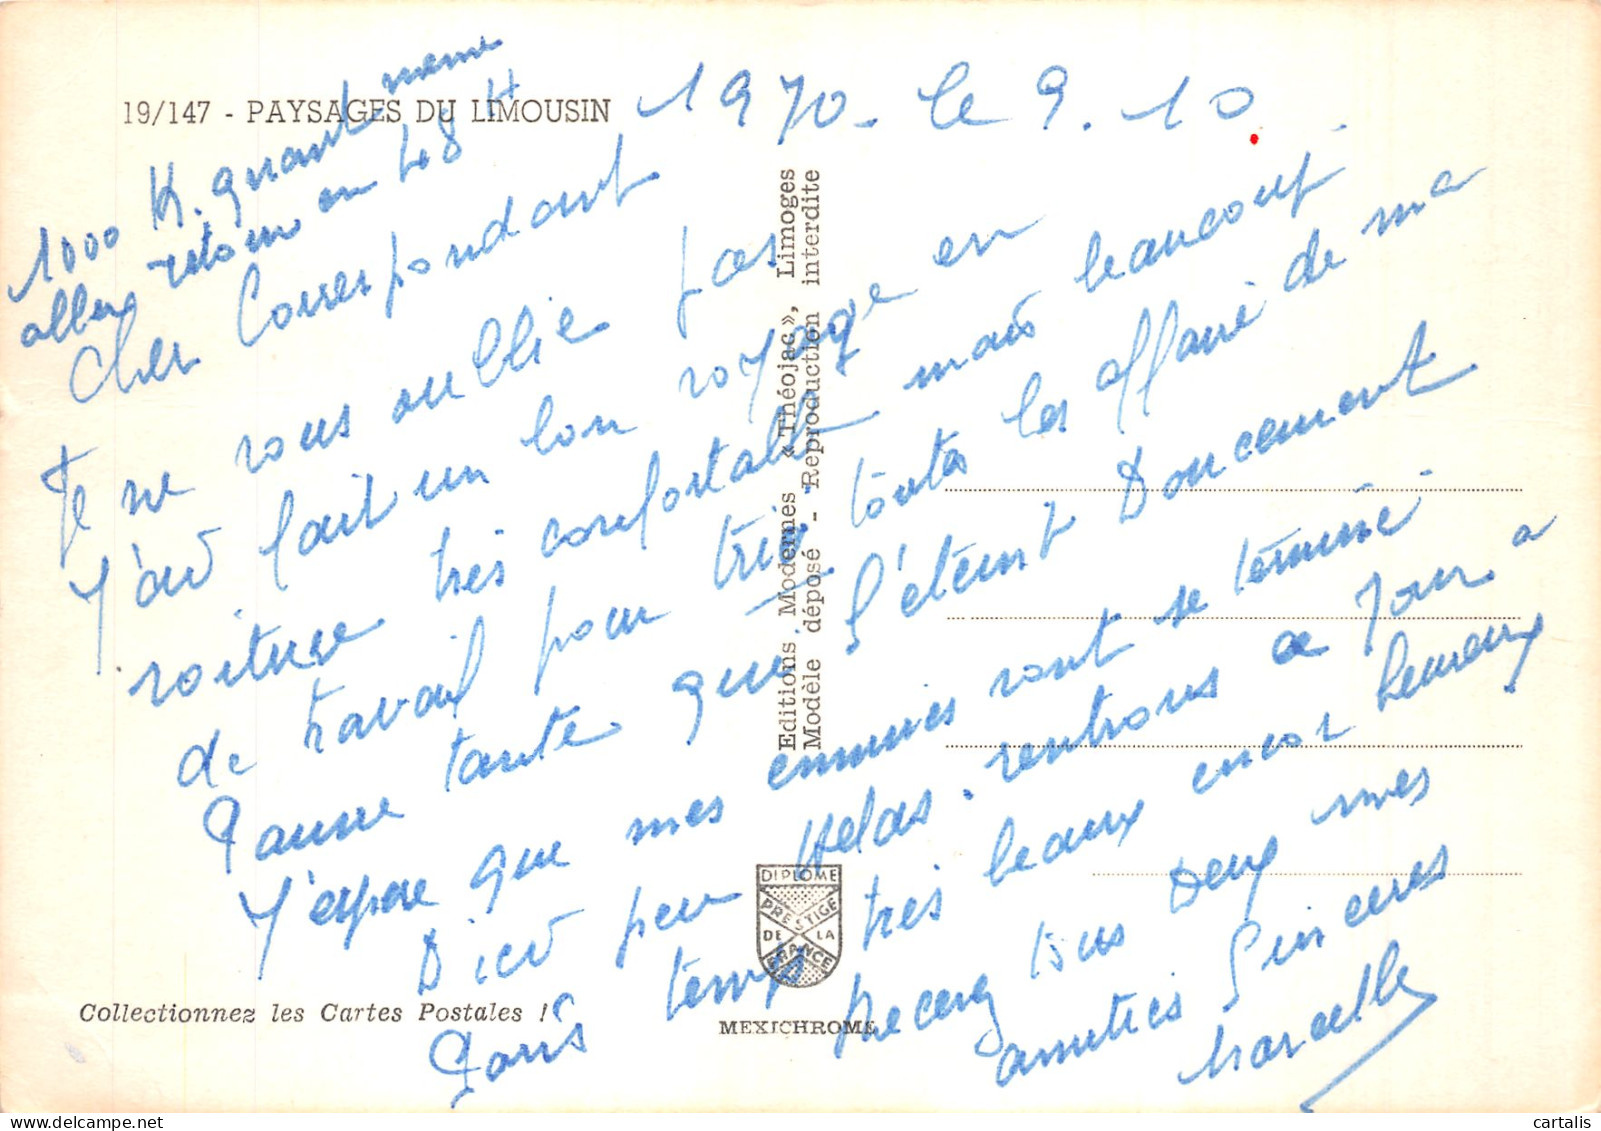 19/147 - PAYSAGES DU LIMOUSIN
1970. le 9.10
1000 K. quant meme
aller retour en 48 H
Cher Correspondant
Je ne vous oublie pas
J'ai fait un bon voyage en
voiture très confortable mais beaucoup
de travail pour trier toutes les affaire de ma
Pauvre tante qui s'éteint Doucement
J'espere que mes ennuies vont se terminé
D'ici peu Helas. rentrons ce Jour a
Paris temps très beaux encor heureux
Recevez tous Deux mes
amities Sinceres
Marcelle
Editions Modernes «Théojac», Limoges
Modèle déposé - Reproduction interdite
DIPLOME
PRESTIGE
DE LA
FRANCE
MEXICHROME
Collectionnez les Cartes Postales !
cartalis